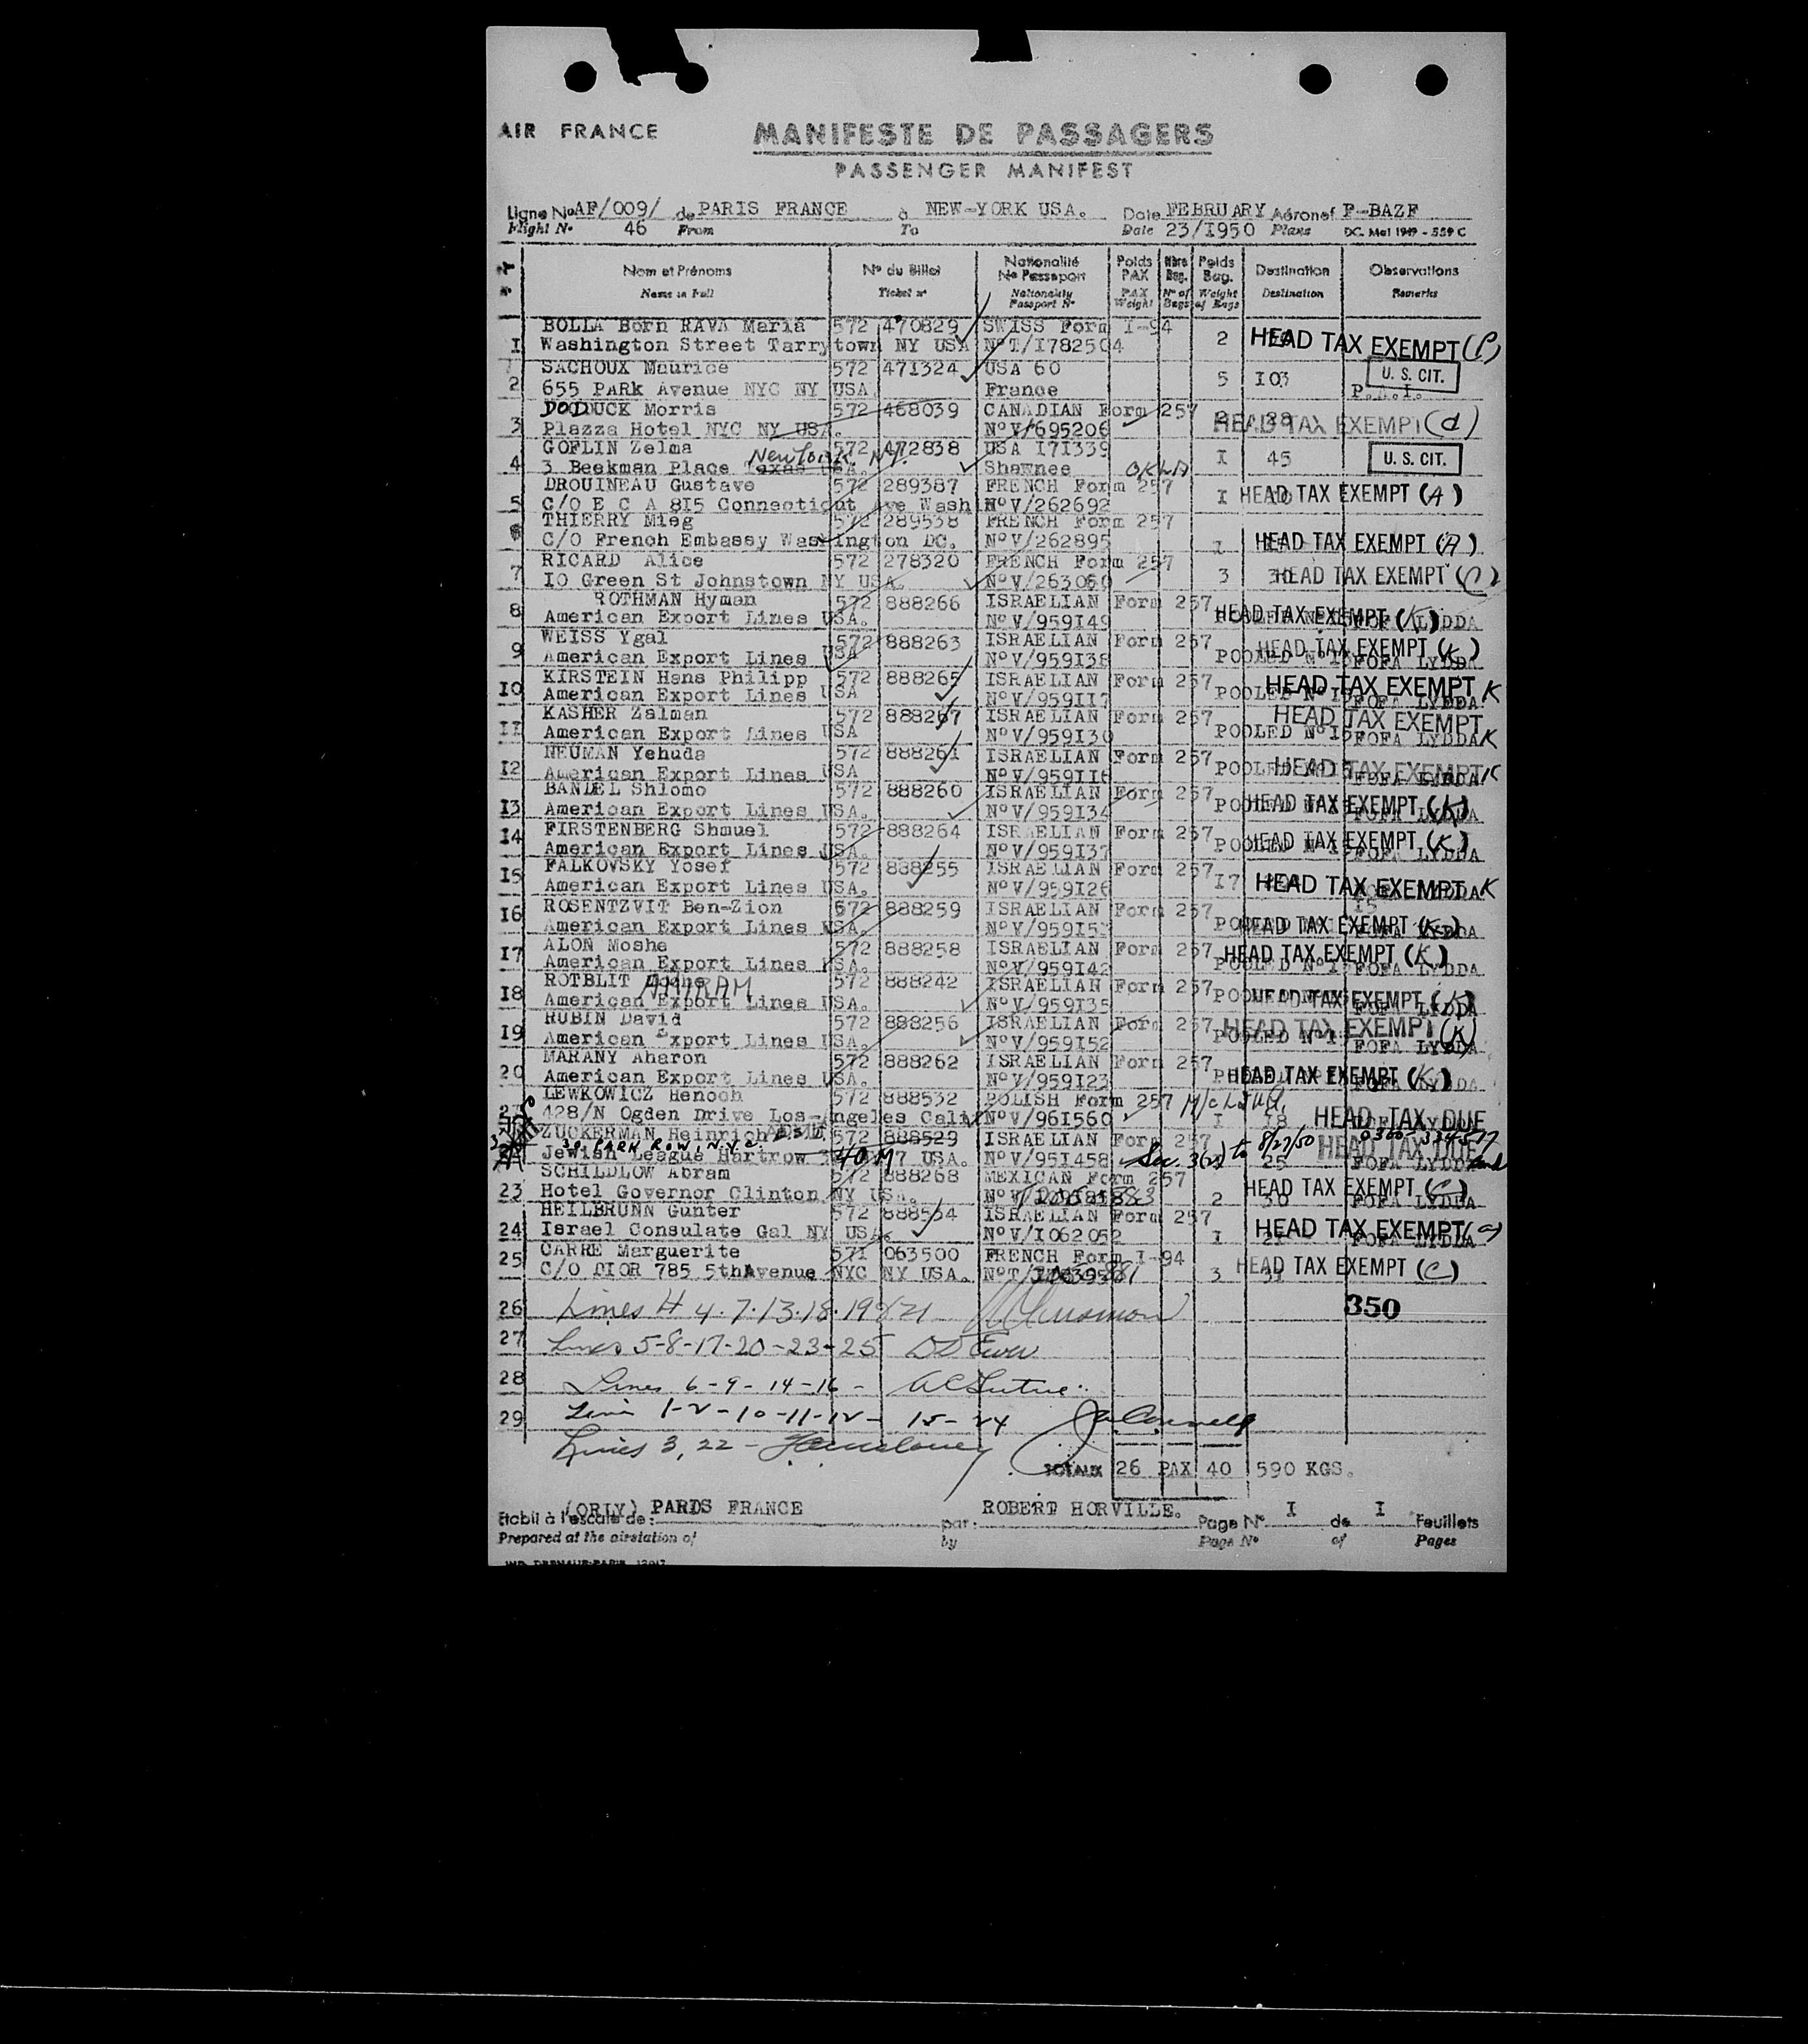 AIR FRANCE
MANIFESTE DE PASSAGERS
PASSENGER MANIFEST
Ligne No AF/009/ de PARIS FRANCE à NEW-YORK USA. Date FEBRUARY Aéronef F-BAZF
Flight No 46 From To Date 23/I950 Plans DC. Mat 1949 - 559 C
Nom et Prénoms No du Billet Nationalité No Passeport Poids PAX Nbre Bag. Poids Bag. Destination Observations
Name in Full Ticket no Nationality Passport No PAX Weight No of Bags Weight of Bags Destination Remarks
BOLLA Born RAVA Maria 572 470829 SWISS Form I-94
I Washington Street Tarrytown NY USA No T/I782504 2 HEAD TAX EXEMPT
SACHOUX Maurice 572 471324 USA 60 U. S. CIT.
2 655 PARK Avenue NYC NY USA France 5 I03
DODUCK Morris 572 468039 CANADIAN Form 257
3 Plazza Hotel NYC NY USA. No V/695206 2 38 HEAD TAX EXEMPT (d)
GOFLIN Zelma 572 472838 USA I71339
New York. NY.
4 3 Beekman Place Texas USA. Shawnee OKLA I 45 U. S. CIT.
DROUINEAU Gustave 572 289387 FRENCH Form 257
5 C/O E C A 8I5 Connecticut Ave Washin No V/262692 I HEAD TAX EXEMPT (A)
THIERRY Mieg 572 289538 FRENCH Form 257
6 C/O French Embassy Washington DC. No V/262895 I HEAD TAX EXEMPT (A)
RICARD Alice 572 278320 FRENCH Form 257
7 IO Green St Johnstown NY USA. No V/263060 3 HEAD TAX EXEMPT (C)
ROTHMAN Hyman 572 888266 ISRAELIAN Form 257
8 American Export Lines USA. No V/959I49 HEAD TAX EXEMPT (K) LYDDA
WEISS Ygal 572 888263 ISRAELIAN Form 257 HEAD TAX EXEMPT (K)
9 American Export Lines USA No V/959I38 POOLED No I5 FOFA LYDDA
KIRSTEIN Hans Philipp 572 888265 ISRAELIAN Form 257 HEAD TAX EXEMPT K
IO American Export Lines USA No V/959II7 POOLED No I5 FOFA LYDDA
KASHER Zalman 572 888267 ISRAELIAN Form 257 HEAD TAX EXEMPT
II American Export Lines USA No V/959I30 POOLED No I5 FOFA LYDDA K
NEUMAN Yehuda 572 888261 ISRAELIAN Form 257
I2 American Export Lines USA No V/959II6 HEAD TAX EXEMPT K
BANDEL Shlomo 572 888260 ISRAELIAN Form 257
I3 American Export Lines USA. No V/959I34 HEAD TAX EXEMPT (K)
FIRSTENBERG Shmuel 572 888264 ISRAELIAN Form 257
I4 American Export Lines USA. No V/959I37 HEAD TAX EXEMPT (K) FOFA LYDDA
FALKOVSKY Yosef 572 888255 ISRAELIAN Form 257
I5 American Export Lines USA. No V/959I26 I7 HEAD TAX EXEMPT K
ROSENTZVIT Ben-Zion 572 888259 ISRAELIAN Form 257
I6 American Export Lines USA. No V/959I53 HEAD TAX EXEMPT (K)
ALON Moshe 572 888258 ISRAELIAN Form 257 HEAD TAX EXEMPT (K)
I7 American Export Lines USA. No V/959I42 POOLED No I5 FOFA LYDDA
ROTBLIT AMIRAM 572 888242 ISRAELIAN Form 257
I8 American Export Lines USA. No V/959I35 HEAD TAX EXEMPT (K) FOFA LYDDA
RUBIN David 572 888256 ISRAELIAN Form 257 HEAD TAX EXEMPT (K)
I9 American Export Lines USA. No V/959I52 POOLED No I5 FOFA LYDDA
MARANY Aharon 572 888262 ISRAELIAN Form 257
20 American Export Lines USA. No V/959I23 HEAD TAX EXEMPT (K)
LEWKOWICZ Henoch 572 888532 POLISH Form 257
2I 428/N Ogden Drive Los-Angeles Calif No V/96I560 I I8 HEAD TAX DUE
ZUCKERMAN Heinrich 572 888529 ISRAELIAN Form 257 to 8/27/50
30 PARK ROW N.Y.C.
Jewish League Hartrow USA. No V/95I458 Sec. 3(2) 25 HEAD TAX DUE FOFA LYDDA
SCHILDLOW Abram 572 888268 MEXICAN Form 257
23 Hotel Governor Clinton NY USA. 2 30 HEAD TAX EXEMPT (C) FOFA LYDDA
HEILBRUNN Gunter 572 888534 ISRAELIAN Form 257
24 Israel Consulate Gal NY USA. No V/I062052 I 21 HEAD TAX EXEMPT FOFA LYDDA
CARRE Marguerite 571 063500 FRENCH Form I-94
25 C/O DIOR 785 5thAvenue NYC NY USA. 3 HEAD TAX EXEMPT (C)
26 Lines # 4.7.13.18.19&21 350
27 Lines 5-8-17-20-23-25
28 Lines 6-9-14-16-
29 Line 1-2-10-11-12- 15-24
Lines 3, 22 -
TOTAUX 26 PAX 40 590 KGS.
Etabli à l'escale de: (ORLY) PARIS FRANCE par: ROBERT HORVILLE. Page No I de I Feuillets
Prepared at the airstation of by Page No of Pages